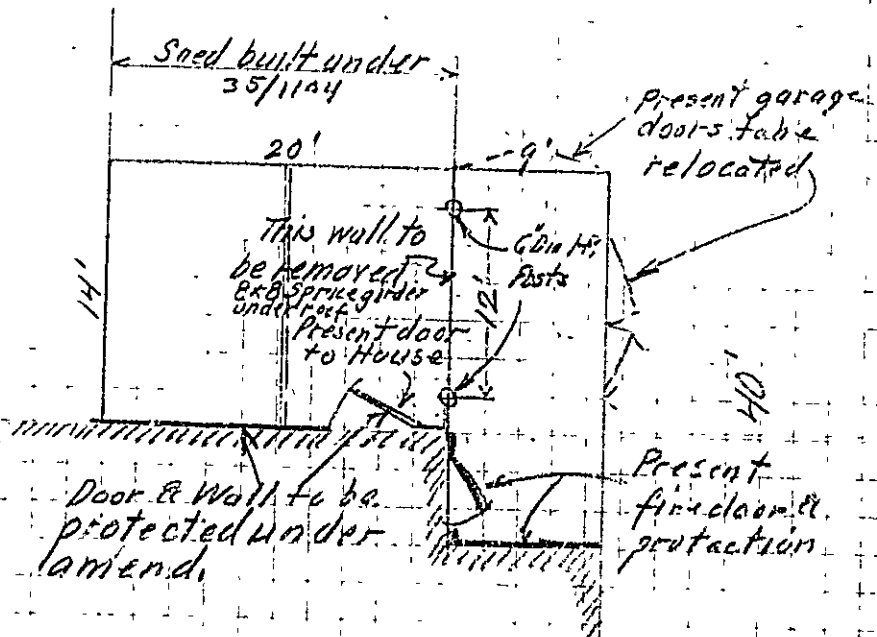 Sned built under
35/1104
20'
9'
present garage
doors to be
relocated
14'
This wall to
be removed
8x8 Spruce girder
under roof
Present door
to House
6" Dia H.
Posts
12'
40'
Door & Wall to be
protected under
amend.
Present
fire door &
protection